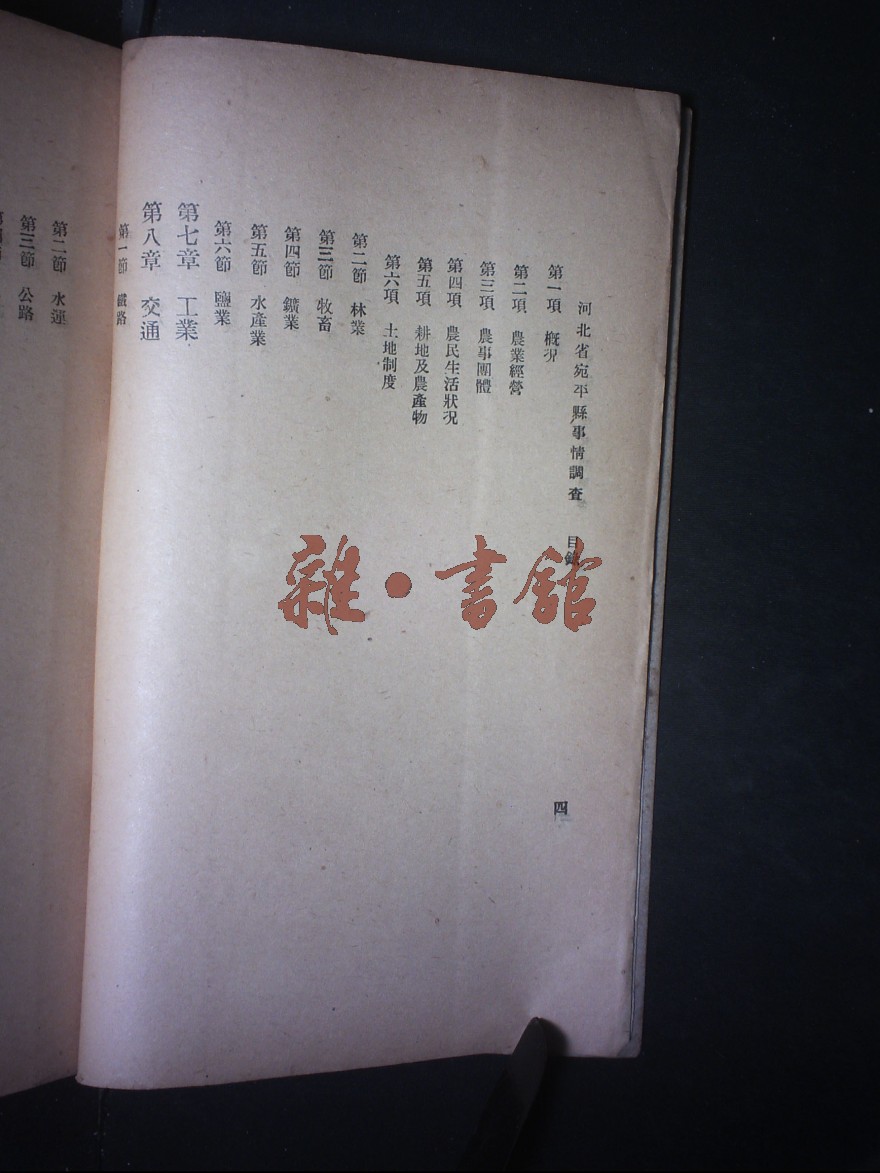 河北省宛平縣事情調查　目錄
四
第一項　概况
第二項　農業經營
第三項　農事團體
第四項　農民生活狀况
第五項　耕地及農產物
第六項　土地制度
第二節　林業
第三節　牧畜
第四節　鑛業
第五節　水產業
第六節　鹽業
第七章　工業
第八章　交通
第一節　鐵路
第二節　水運
第三節　公路
雜·書館